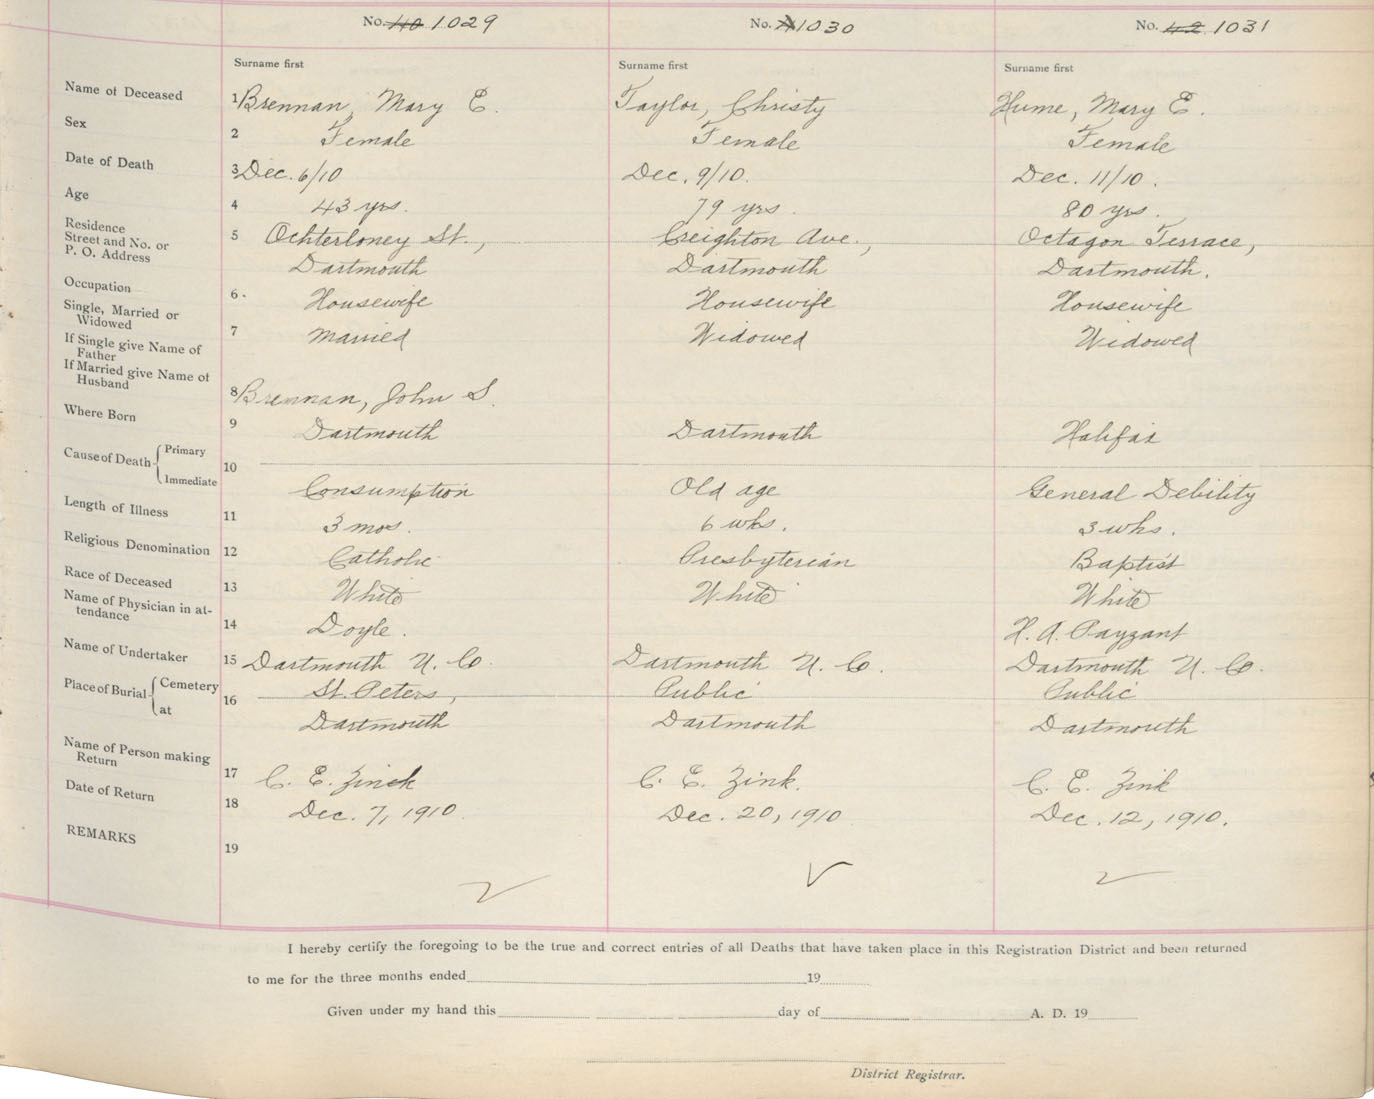 No. 40 1029 No. 41 1030 No. 42 1031
Surname first Surname first Surname first
Name of Deceased 1 Brennan, Mary E. Taylor, Christy Hume, Mary E.
Sex 2 Female Female Female
Date of Death 3 Dec. 6/10 Dec. 9/10. Dec. 11/10.
Age 4 43 yrs. 79 yrs. 80 yrs.
Residence
Street and No. or
P. O. Address
5 Ochterloney St., Creighton Ave., Octagon Terrace,
Dartmouth Dartmouth Dartmouth.
Occupation 6. Housewife Housewife Housewife
Single, Married or
Widowed
7 Married Widowed Widowed
If Single give Name of
Father
If Married give Name of
Husband
8 Brennan, John S.
Where Born 9 Dartmouth Dartmouth Halifax
Cause of Death Primary
Immediate
10 Consumption Old age General Debility
Length of Illness 11 3 mos. 6 wks. 3 wks.
Religious Denomination 12 Catholic Presbyterian Baptist
Race of Deceased 13 White White White
Name of Physician in at-
tendance
14 Doyle. H. A. Payzant
Name of Undertaker 15 Dartmouth U. Co. Dartmouth U. Co. Dartmouth U. Co.
Place of Burial Cemetery
at
16 St. Peters, Public Public
Dartmouth Dartmouth Dartmouth
Name of Person making
Return
17 C. E. Zinck C. E. Zink. C. E. Zink
Date of Return 18 Dec. 7, 1910. Dec. 20, 1910 Dec. 12, 1910.
REMARKS 19
I hereby certify the foregoing to be the true and correct entries of all Deaths that have taken place in this Registration District and been returned
to me for the three months ended 19
Given under my hand this day of A. D. 19
District Registrar.